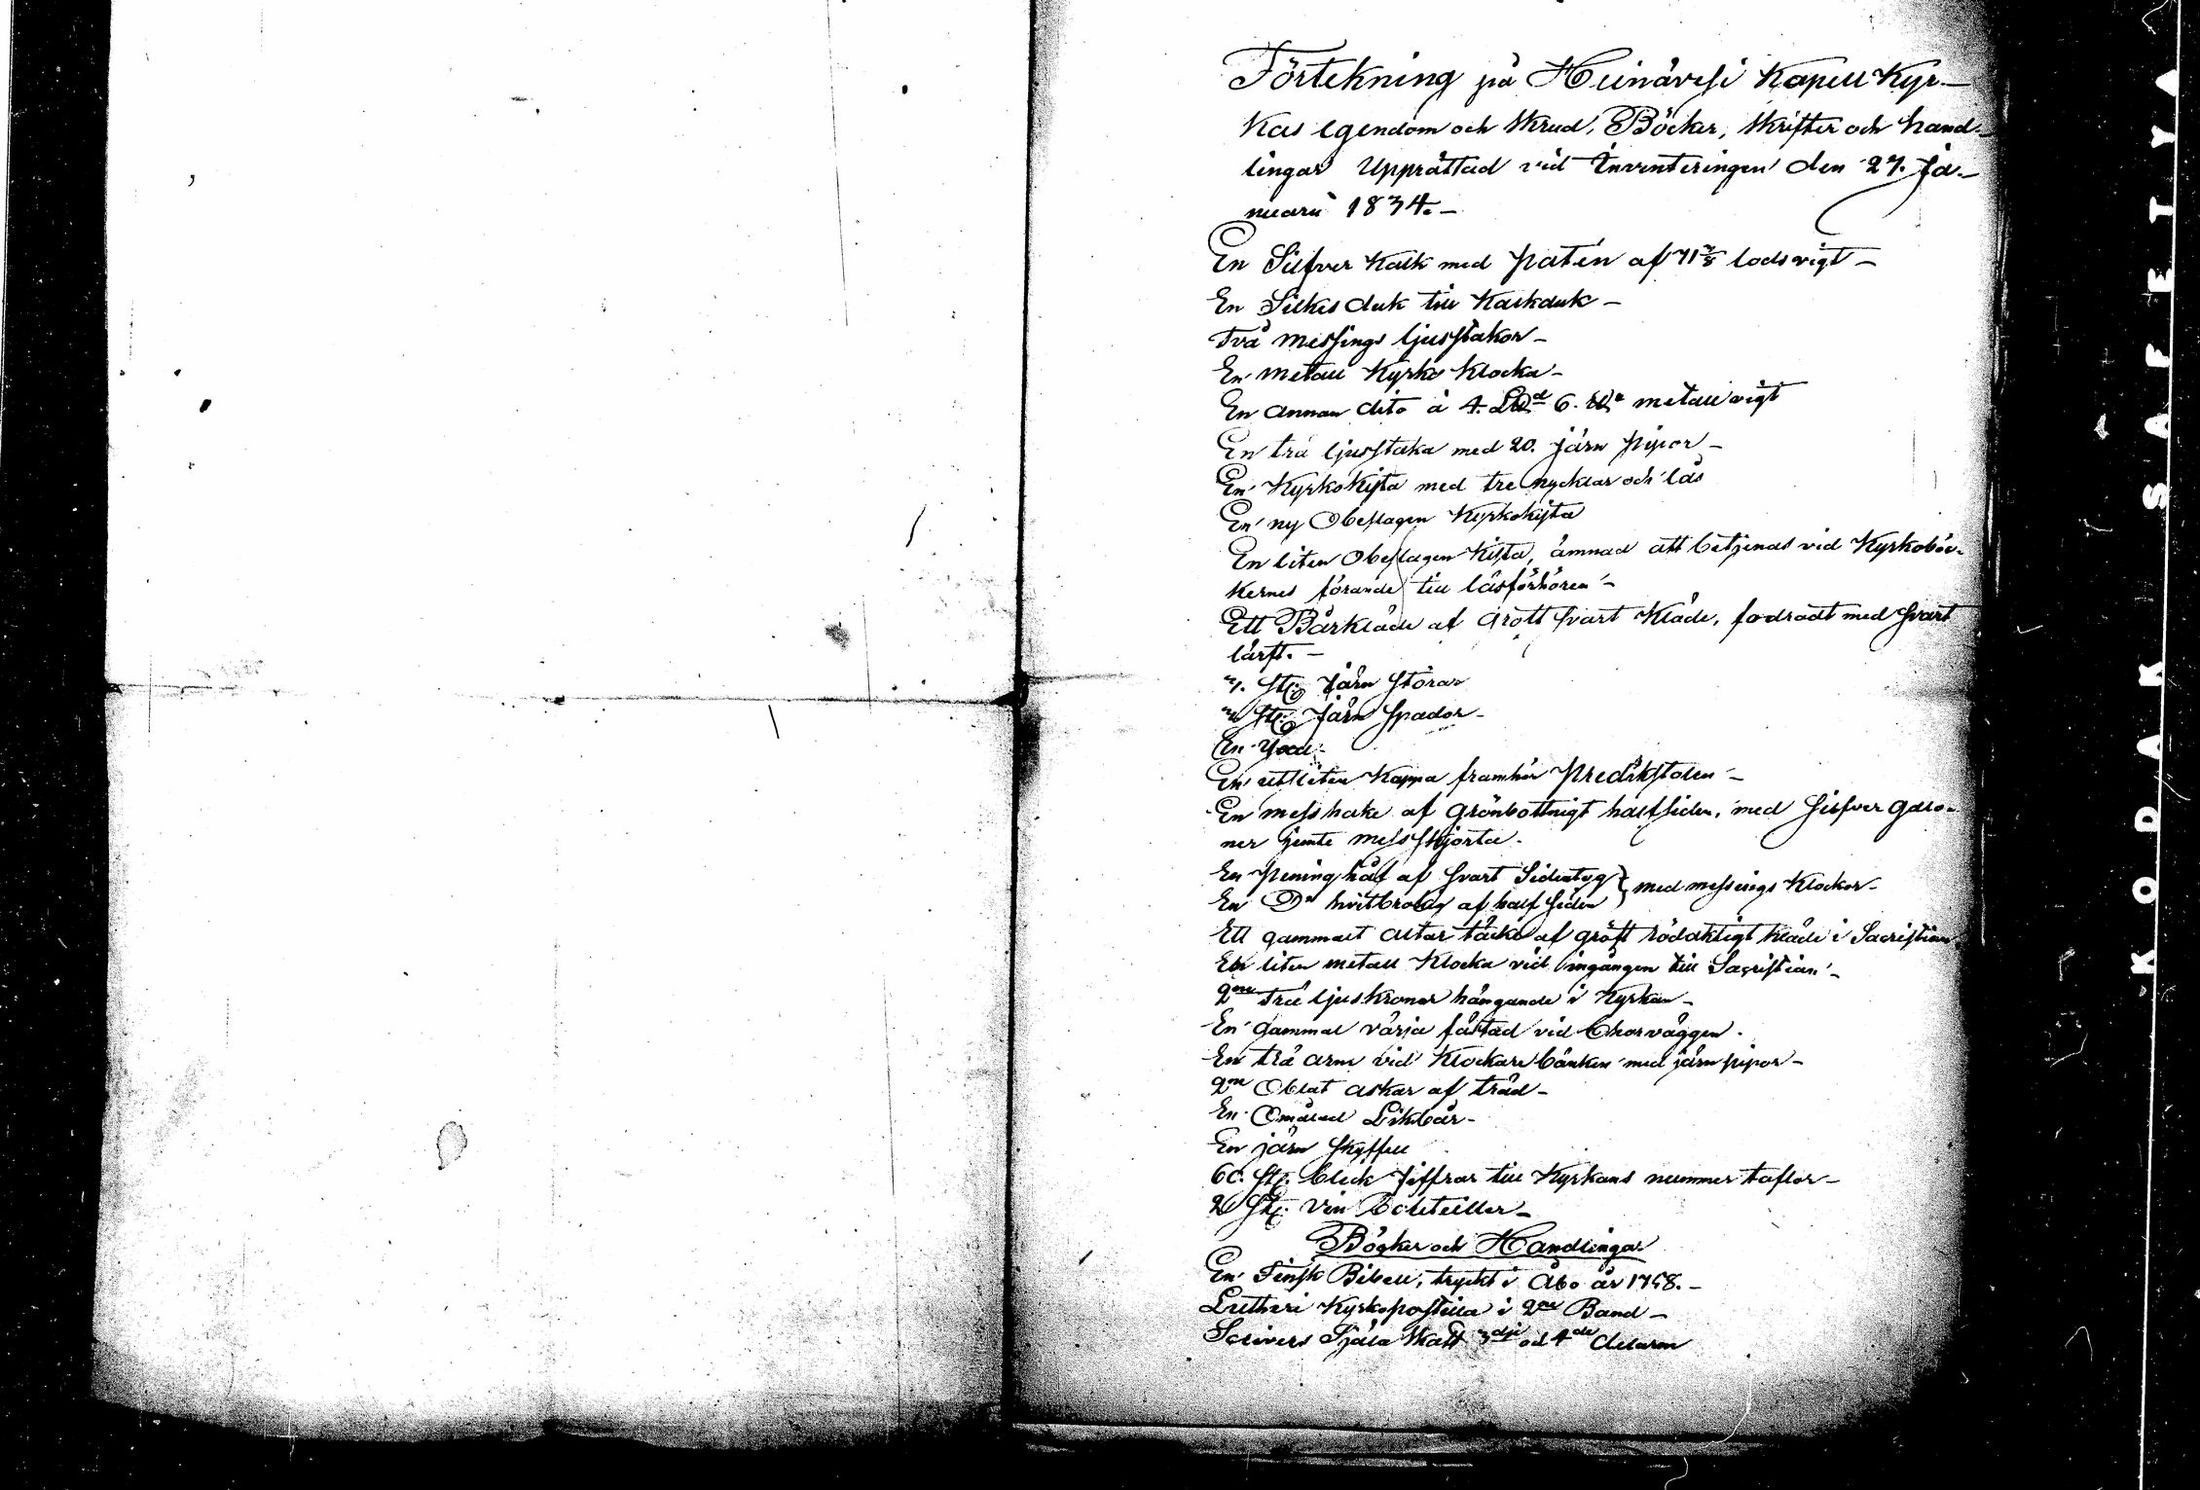 Förtekning på Heinävesi Kapell Kyr-
kas egendom och skrud, Böcker, skrifter och hand-
lingar Upprättad vid Inventeringen den 27. Ja-
nuarii 1834.-
En Silfver kalk med patén af lods vigt -
En Silkes duk till Kalkduk -
Två messings ljusstakor -
En metall Kyrko Klocka -
En annan dito à 4. 6. metall vigt
En trä ljusstaka med 20. järn pipor -
En Kyrkokista med tre nycklar och lås
En ny Obeslagen Kyrkokista
En liten Obeslagen Kista, ämnad att betjenas vid Kyrkoböc-
kernes förande till läsförhören -
Ett Bårkläde af gröft svart Kläde, fodradt med svart
lärft. -
st: Järn störar
st: Järn spador -
En
En utsliten Kappa framhör Predikstolen -
En messhake af grönbottnigt halfsiden, med silfver galo-
ner jemte messskjorta.
En Pening håf af svart Sidentyg } med messings Klockor -
En Do hvitbrokig af half siden
Ett gammalt altar täcke af gröft rödaktigt kläde i Sacristian
En liten metall Klocka vid ingången till Sacristian -
2ne Trä ljuskronor hängande i Kyrkan -
En gammal värja fästad vid Chorväggen.
En trä arm vid Klockare bänken med järn pipor -
2ne Oblat askar af träd -
En Omålad Likbår -
En järn skyffel
60. st: bleck siffror till Kyrkans nummer taflor -
2 st: vin Bouteiller -
Böcker och Handlingar
En Finsk Bibell, tryckt i Åbo år 1758. -
Lutheri Kyrkopostilla i 2ne Band -
Scrivers Själa Skatt 3dje och 4de delarne
KODAK SAFETY